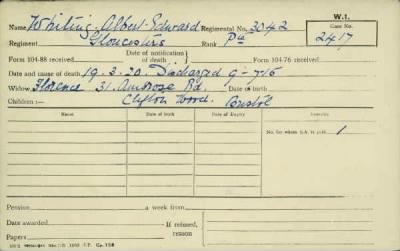 W.1.
Name Whiting. Albert Edward Regimental No. 3042 Case No.
Regiment Gloucesters Rank Pte 2417
Form 104-88 received Date of notification of death Form 104-76 received
Date and cause of death 19.3.20. Discharged 9-7-15
Widow Florence 31. Ambrose Rd. Date of birth
Children:— Clifton Wood. Bristol
Name Date of birth Date of Expiry Remarks
No. for whom S.A. is paid 1
Pension a week from
Date awarded If refused, reason
Papers